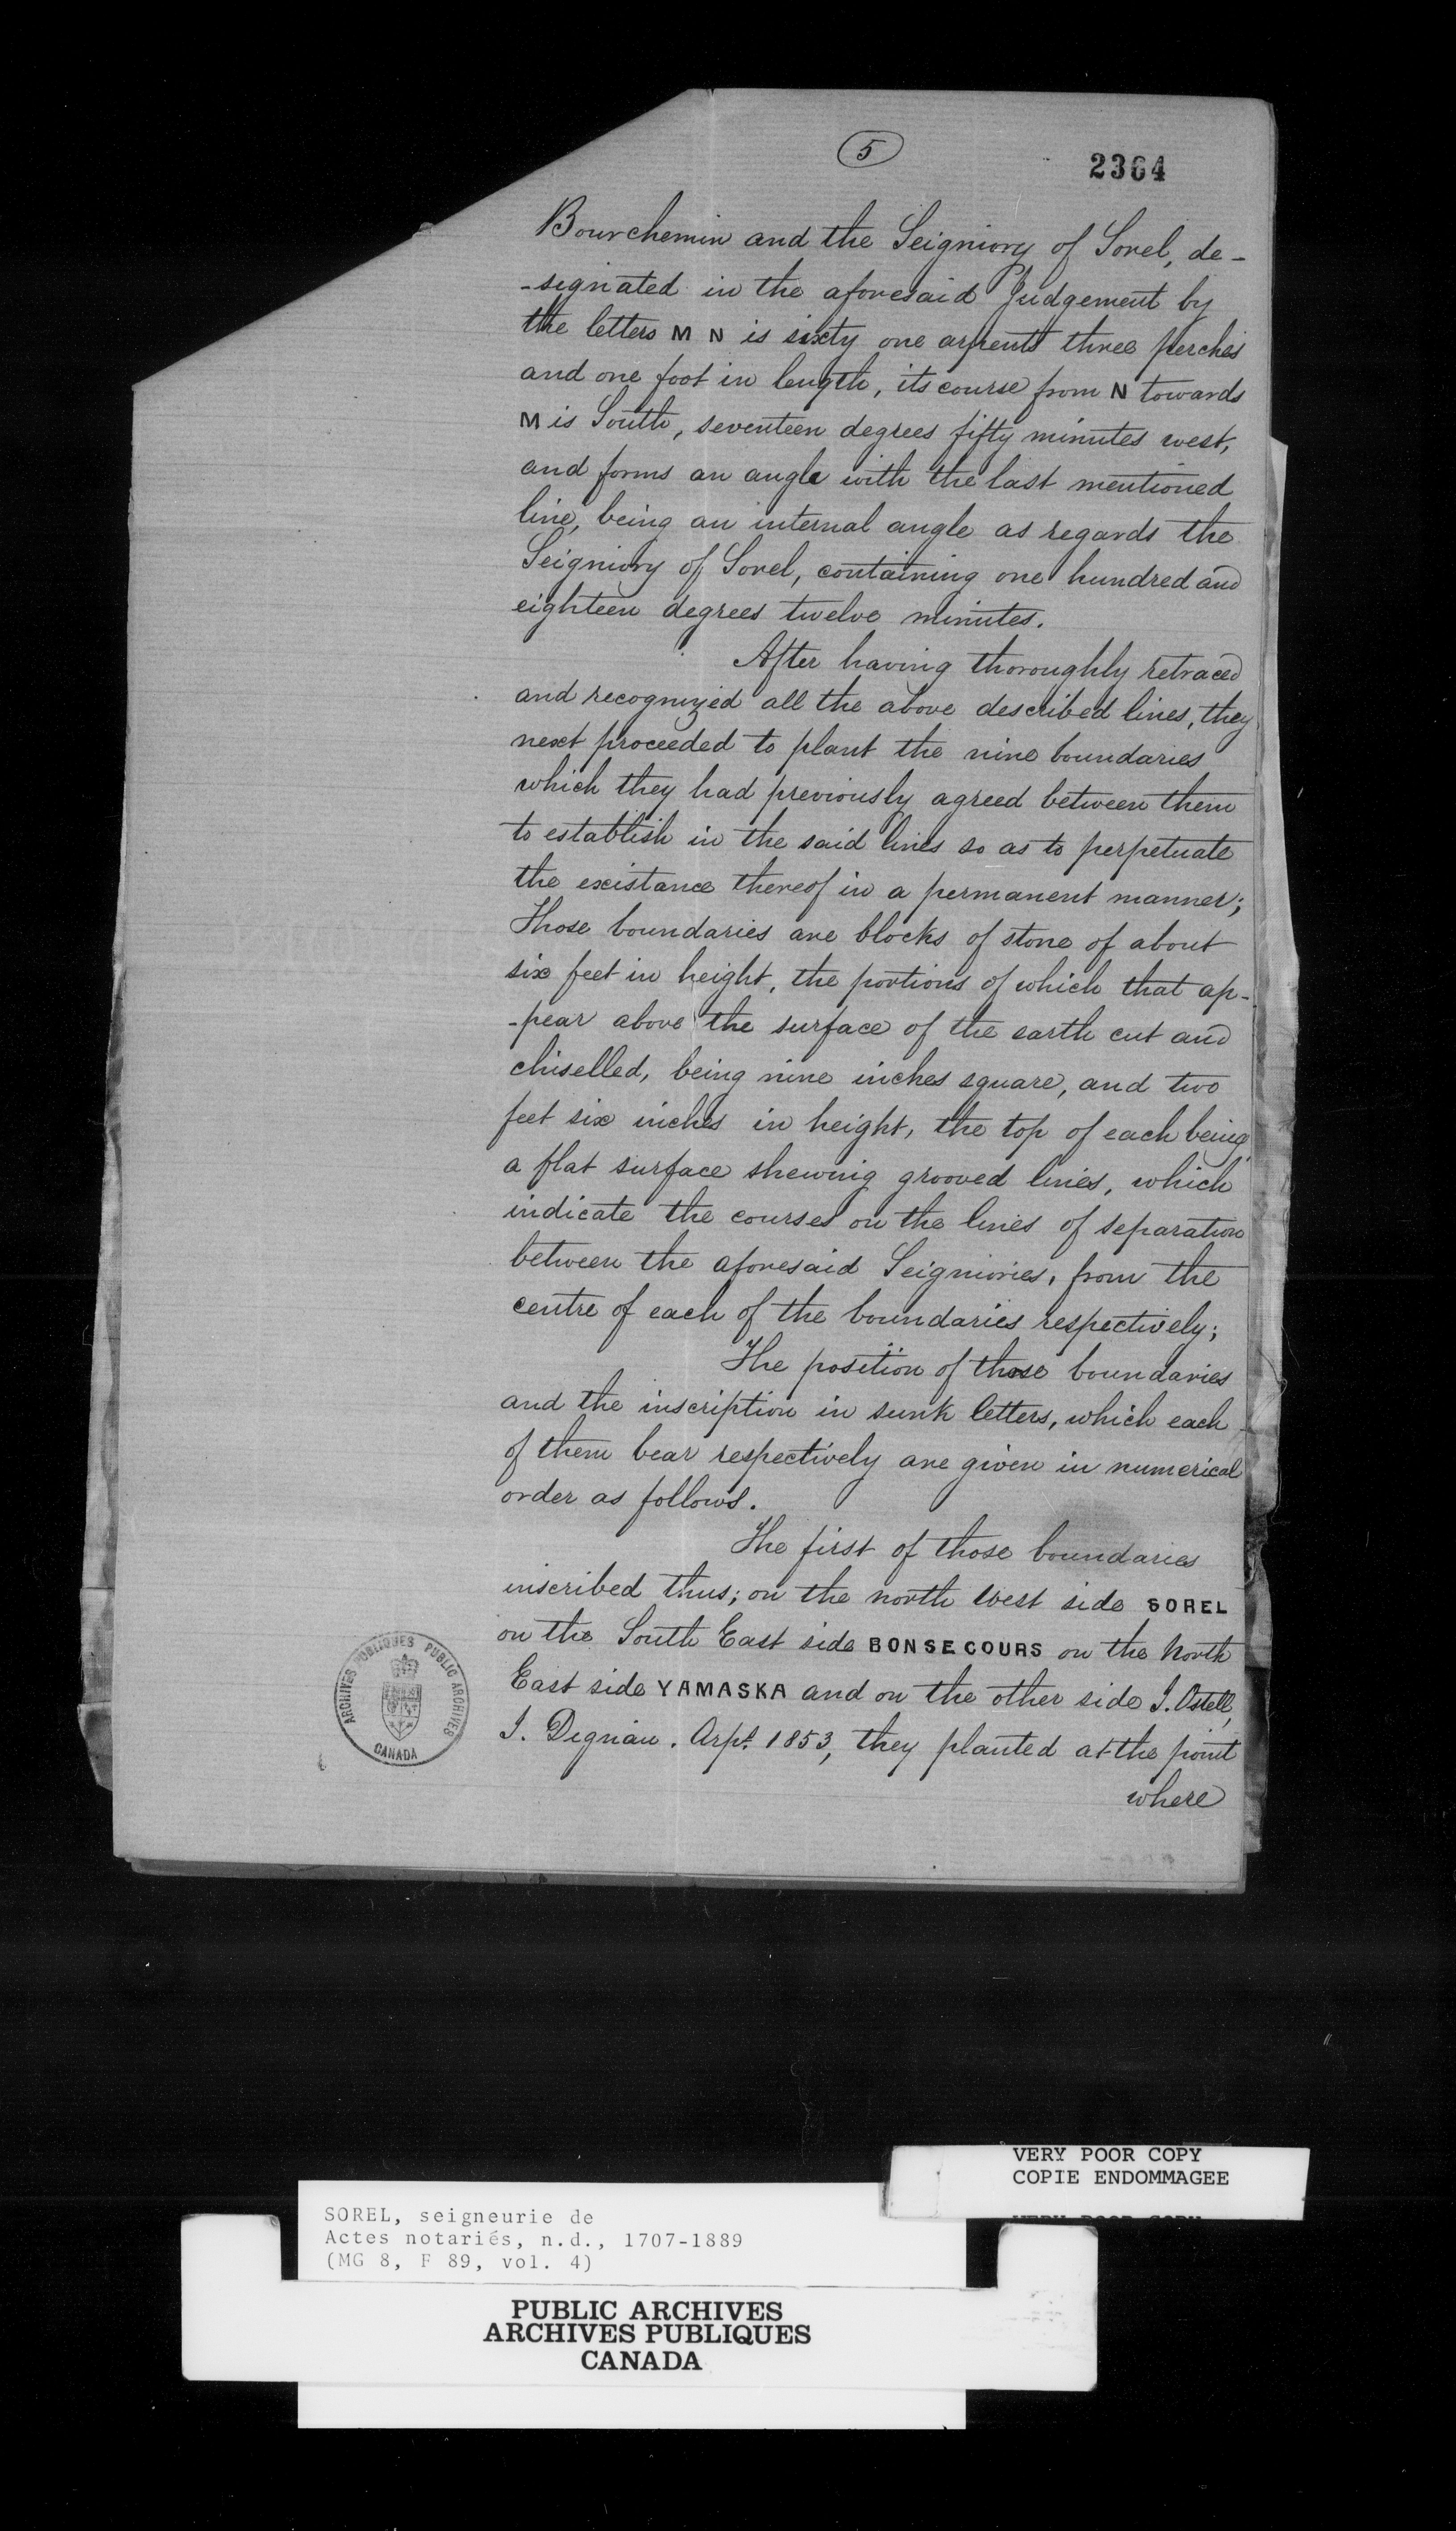 5
2364
Bourchemin and the Seigniory of Sorel, de-
-signated in the aforesaid Judgement by
the letters M N is sixty one arpents three perches
and one foot in length, its course from N towards
M is South, seventeen degrees fifty minutes west,
and forms an angle with the last mentioned
line, being an internal angle as regards the
Seigniory of Sorel, containing one hundred and
eighteen degrees twelve minutes.
After having thoroughly retraced
and recognized all the above described lines, they
next proceeded to plant the nine boundaries
which they had previously agreed between them
to establish in the said lines so as to perpetuate
the existance thereof in a permanent manner;
Those boundaries are blocks of stone of about
six feet in height, the portions of which that ap-
-pear above the surface of the earth cut and
chiselled, being nine inches square, and two
feet six inches in height, the top of each being
a flat surface shewing grooved lines, which
indicate the courses on the lines of separation
between the aforesaid Seigniories, from the
centre of each of the boundaries respectively;
The position of those boundaries
and the inscription in sunk letters, which each
of them bear respectively are given in numerical
order as follows.
The first of those boundaries
inscribed thus; on the north west side SOREL
on the South East side BONSECOURS on the North
East side YAMASKA and on the other side J. Ostell,
J. Dignan. Arpt. 1853, they planted at the point
where
ARCHIVES PUBLIQUES PUBLIC ARCHIVES
CANADA
VERY POOR COPY
COPIE ENDOMMAGEE
VERY POOR COPY
SOREL, seigneurie de
Actes notariés, n.d., 1707-1889
(MG 8, F 89, vol. 4)
PUBLIC ARCHIVES
ARCHIVES PUBLIQUES
CANADA